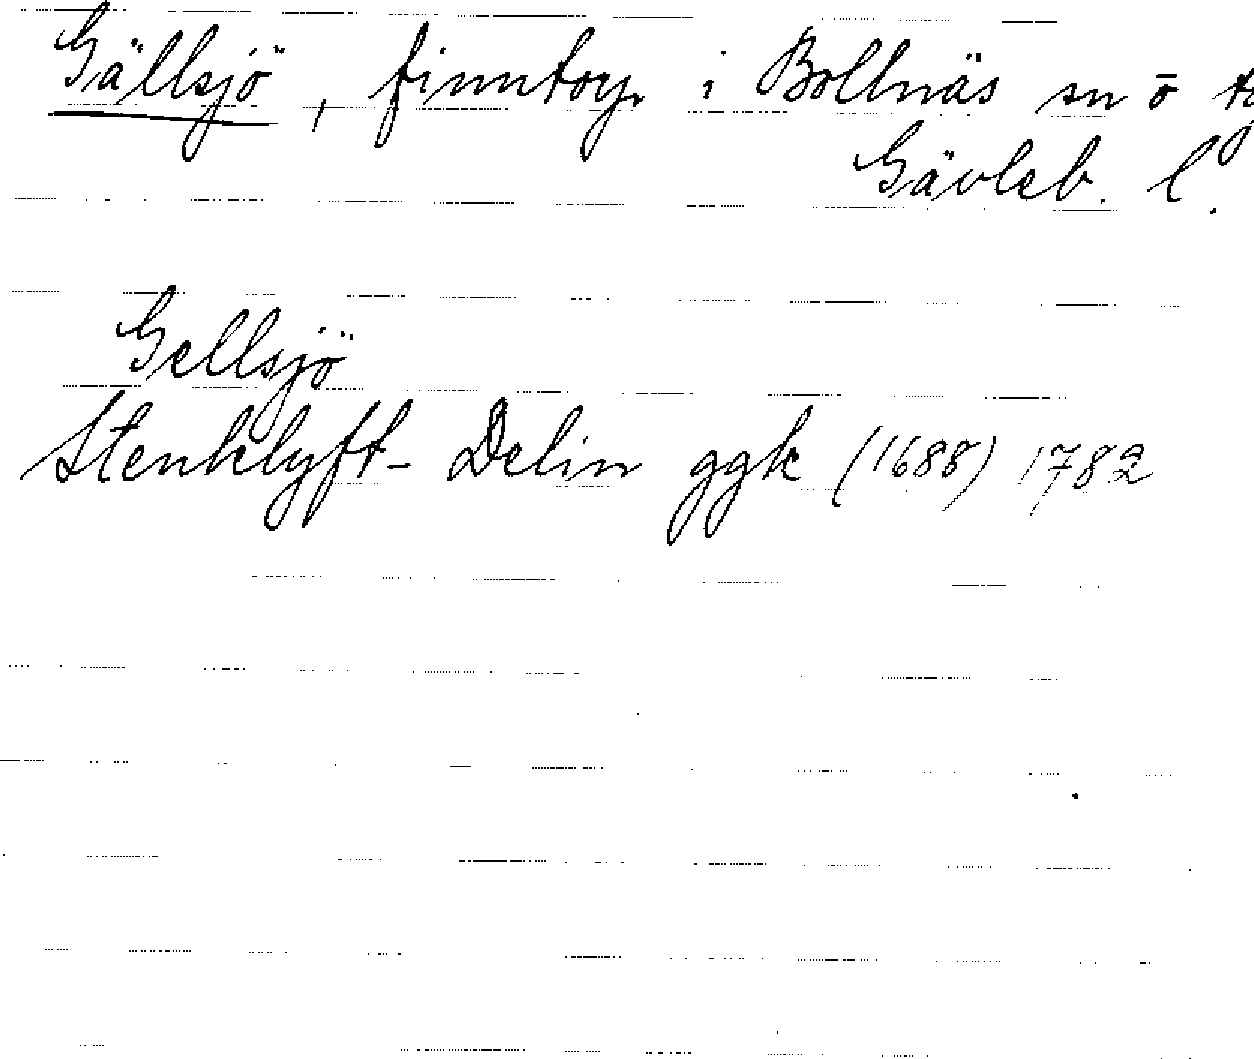 Gällsjö, finntorp. i Bollnäs sn ō
Gävleb. l.
Gellsjö
Stenklyft- Delin ggk (1688) 1782